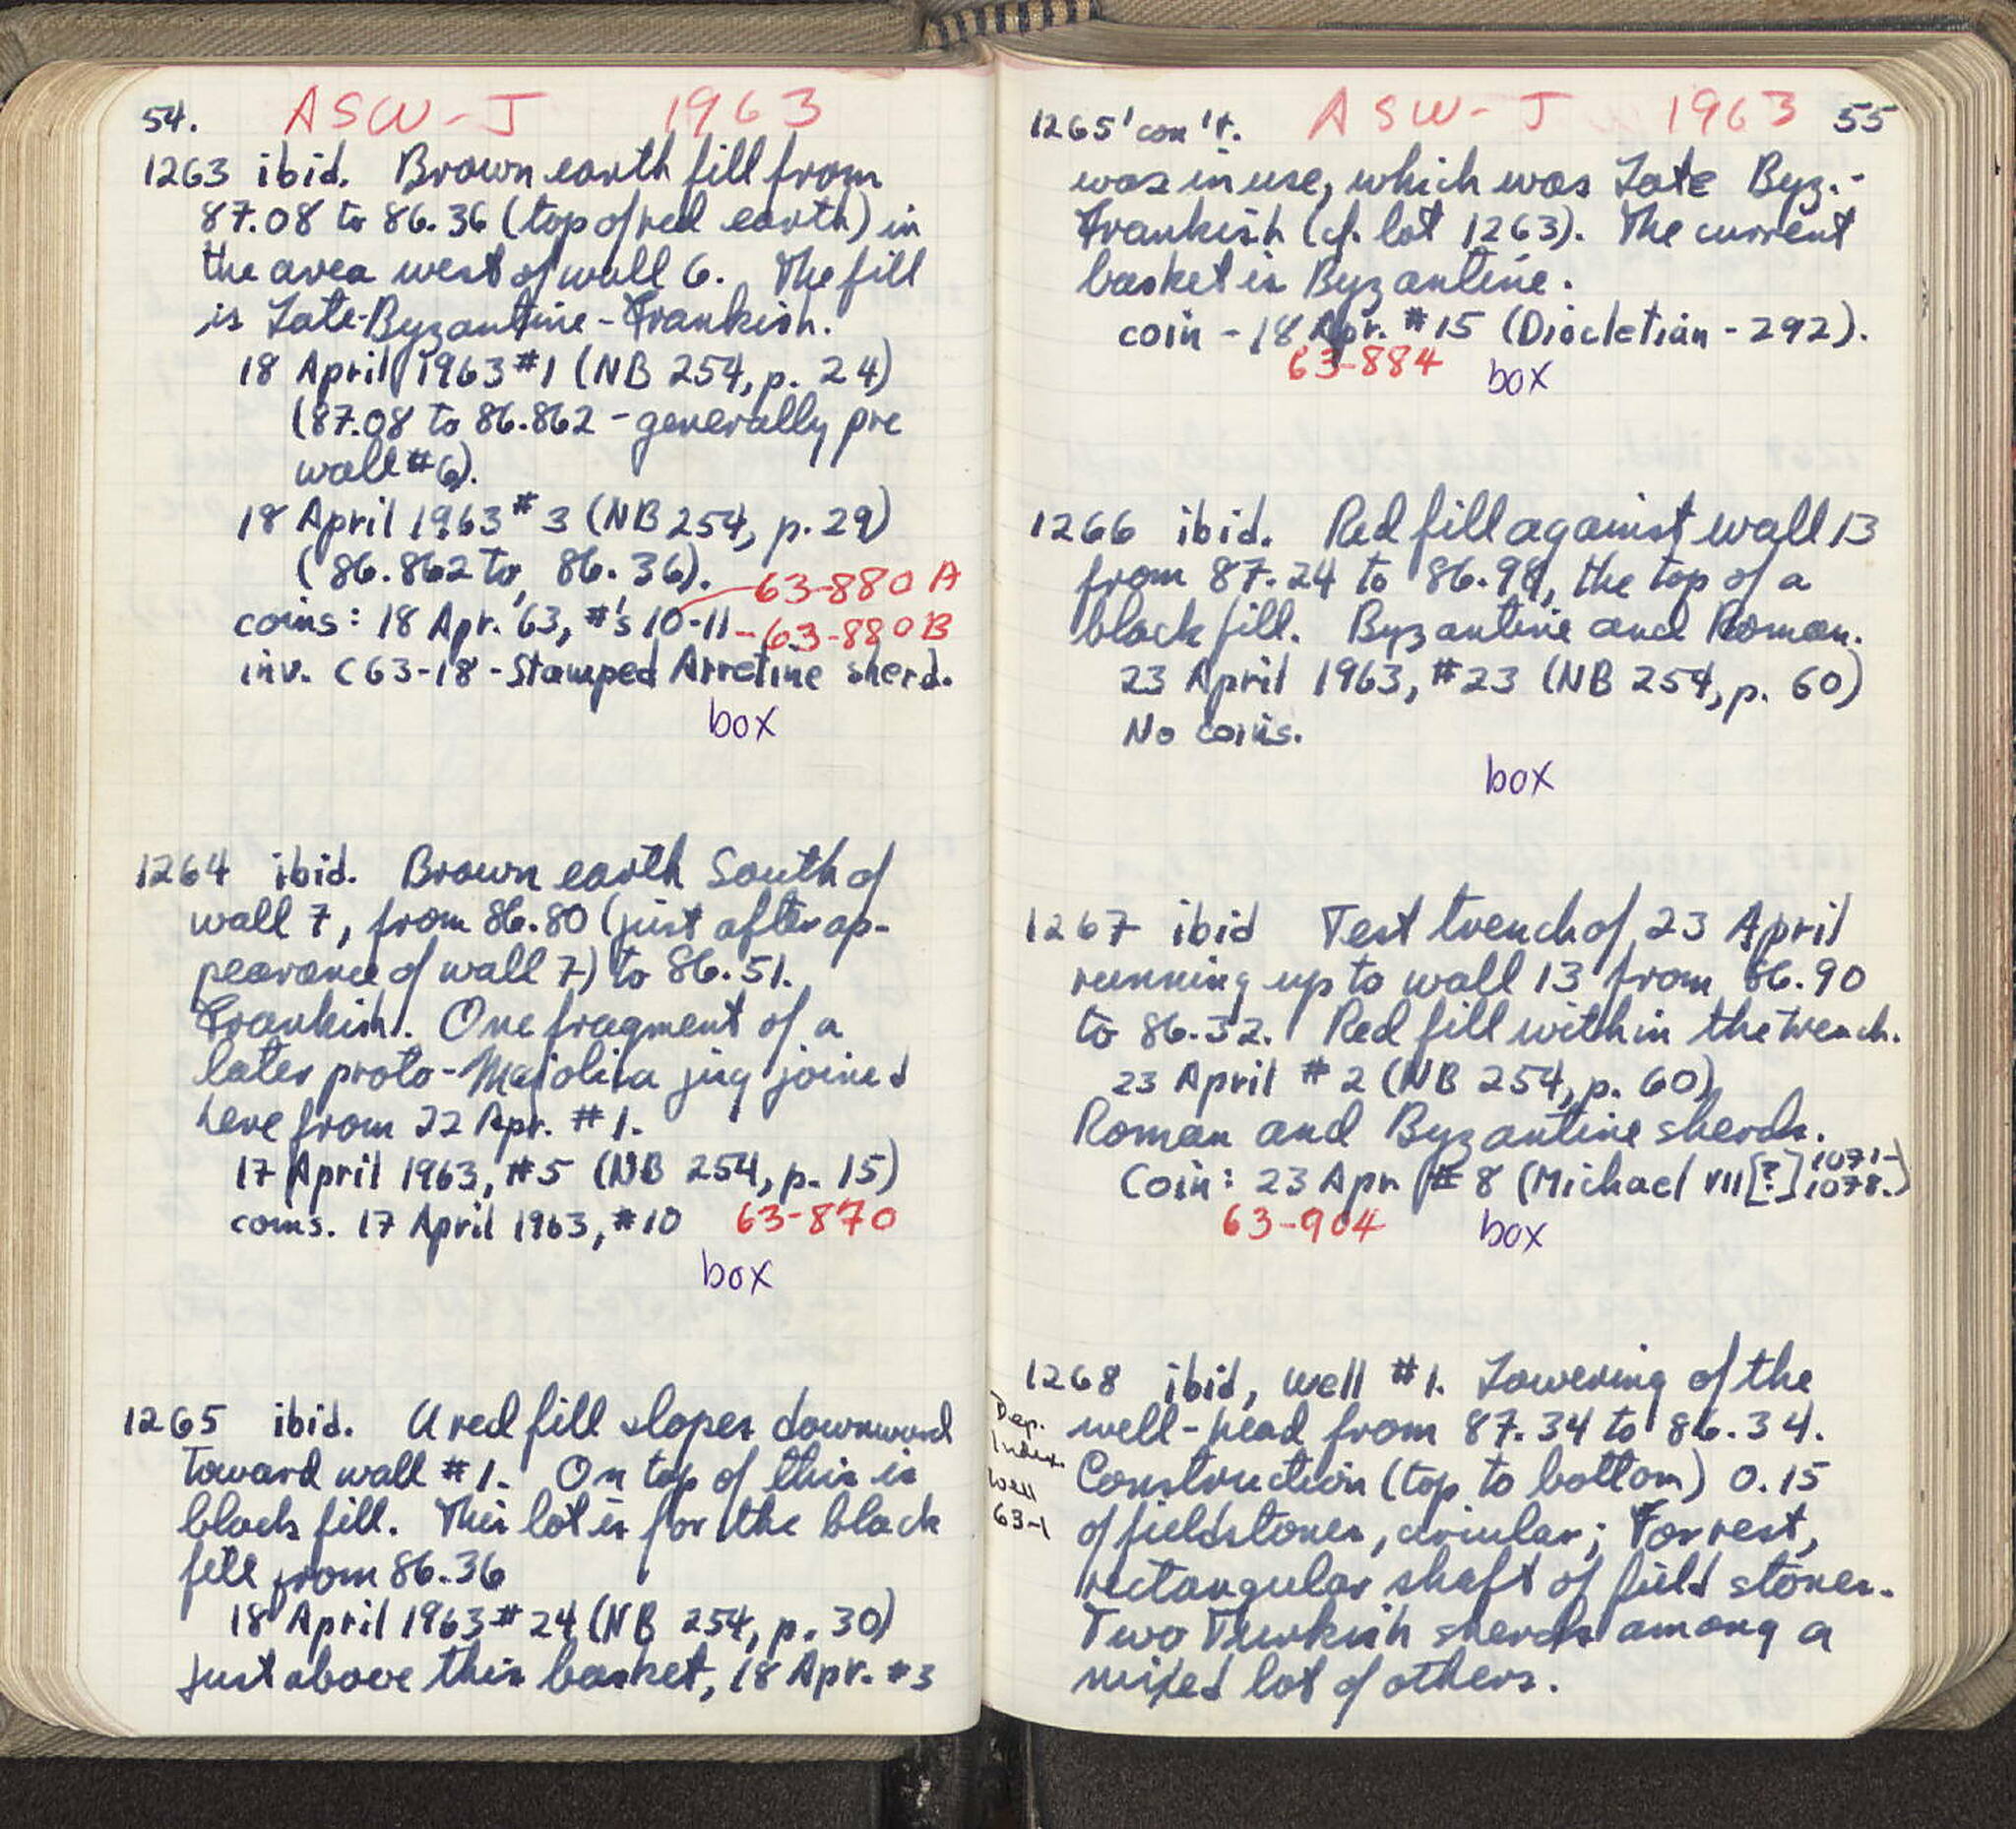 54. ASW-J 1963
1263 ibid. Brown earth fill from
87.08 to 86.36 (top of red earth) in
the area west of wall 6. The fill
is Late-Byzantine-Frankish.
18 April 1963 #1 (NB 254, p. 24)
(87.08 to 86.862 - generally pre
wall #6).
18 April 1963 #3 (NB 254, p. 29)
(86.862 to 86.36).
63-880 A
coins: 18 Apr. '63, #'s 10-11 - 63-880 B
inv. C 63-18 - Stamped Arretine sherd.
box
1264 ibid. Brown earth South of
wall 7, from 86.80 (just after ap-
pearance of wall 7) to 86.51.
Frankish. One fragment of a
later proto-Majolica jug joined
here from 22 Apr. #1.
17 April 1963, #5 (NB 254, p. 15)
coins. 17 April 1963, #10 63-870
box
1265 ibid. A red fill slopes downward
toward wall #1. On top of this is
black fill. This lot is for the black
fill from 86.36
18 April 1963 #24 (NB 254, p. 30)
Just above this basket, 18 Apr. #3
1265 'con't. ASW-J 1963 55
was in use, which was Late Byz.-
Frankish (cf. lot 1263). The current
basket is Byzantine.
coin - 18 Apr. #15 (Diocletian - 292).
63-884 box
1266 ibid. Red fill against wall 13
from 87.24 to 86.98, the top of a
black fill. Byzantine and Roman.
23 April 1963, #23 (NB 254, p. 60)
No coins.
box
1267 ibid Test trench of 23 April
running up to wall 13 from 86.90
to 86.32. Red fill within the trench.
23 April #2 (NB 254, p. 60)
Roman and Byzantine sherds.
Coin: 23 Apr #8 (Michael VII [?] 1071-
1078.)
63-904 box
1268 ibid, well #1. Lowering of the
well-head from 87.34 to 86.34.
Construction (top to bottom) 0.15
of fieldstones, circular; For rest,
rectangular shaft of field stones.
Two Turkish sherds among a
mixed lot of others.
Dep.
Index.
Well
63-1